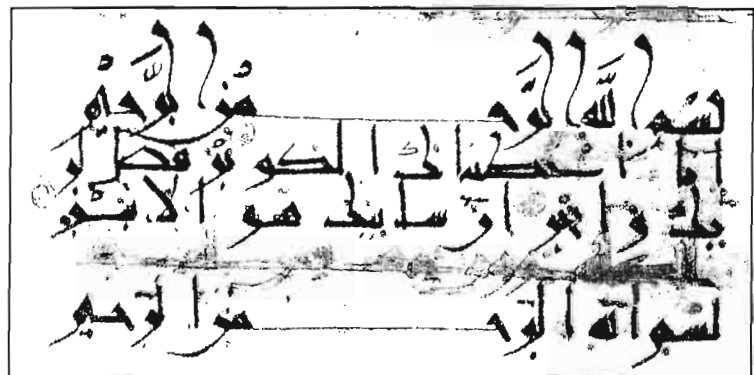 بسم الله الرحمن الرحيم
انا اعطيناك الكوثر فصل لر
بك وانحر ان شانئك هو الابتر
بسم الله الرحمن الرحيم